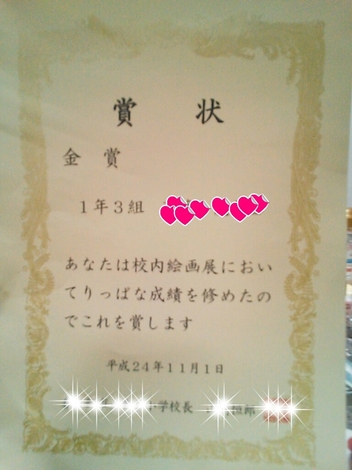 賞状
金賞
1年3組
あなたは校内絵画展におい
てりっぱな成績を修めたの
でこれを賞します
平成24年11月1日
小学校長 恒郎